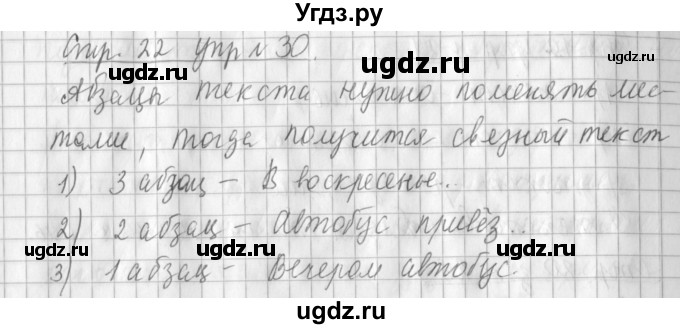 Угдз.ру
Стр. 22 упр № 30.
Абзацы текста нужно поменять мес-
тами, тогда получится связный текст
1) 3 абзац – В воскресенье..
2) 2 абзац – Автобус привёз..
3) 1 абзац – Вечером автобус.
ugdz.ru ugdz.ru ugdz.ru
ugdz.ru ugdz.ru ugdz.ru
ugdz.ru